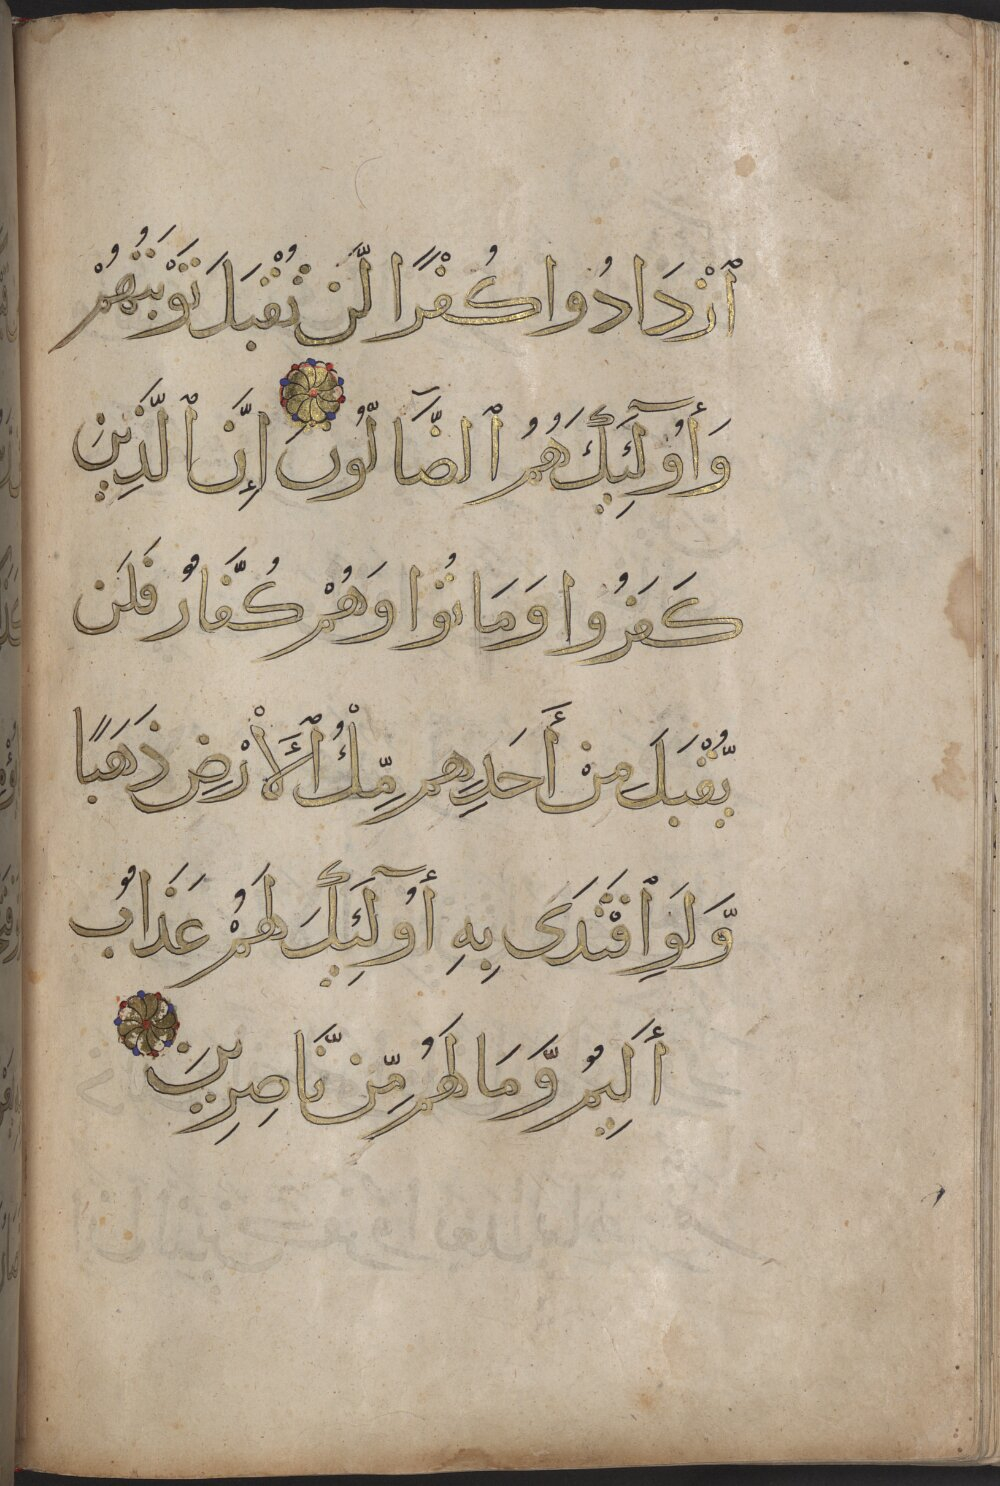 ٱزْدَادُوا كُفْرًا لَّن تُقْبَلَ تَوْبَتُهُمْ
وَأُولَٰٓئِكَ هُمُ ٱلضَّآلُّونَ إِنَّ ٱلَّذِينَ
كَفَرُوا وَمَاتُوا وَهُمْ كُفَّارٌ فَلَن
يُّقْبَلَ مِنْ أَحَدِهِم مِّلْءُ ٱلْأَرْضِ ذَهَبًا
وَّلَوِ ٱفْتَدَى بِهِ أُولَٰٓئِكَ لَهُمْ عَذَابٌ
أَلِيمٌ وَّمَا لَهُم مِّن نَّاصِرِينَ